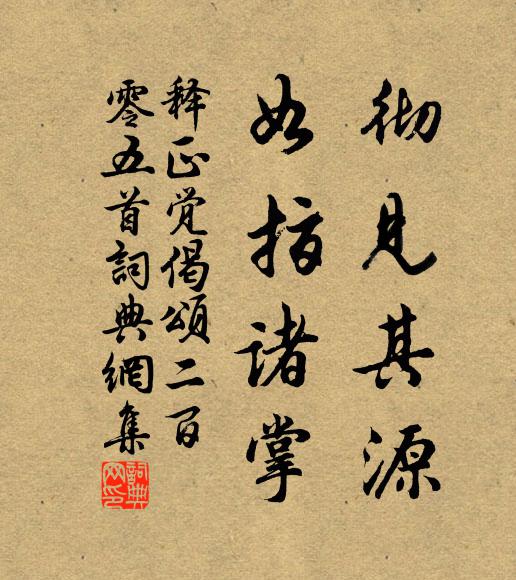 彻见其源
如指诸掌
释正觉偈颂二百
零五首词典网集
词典网印